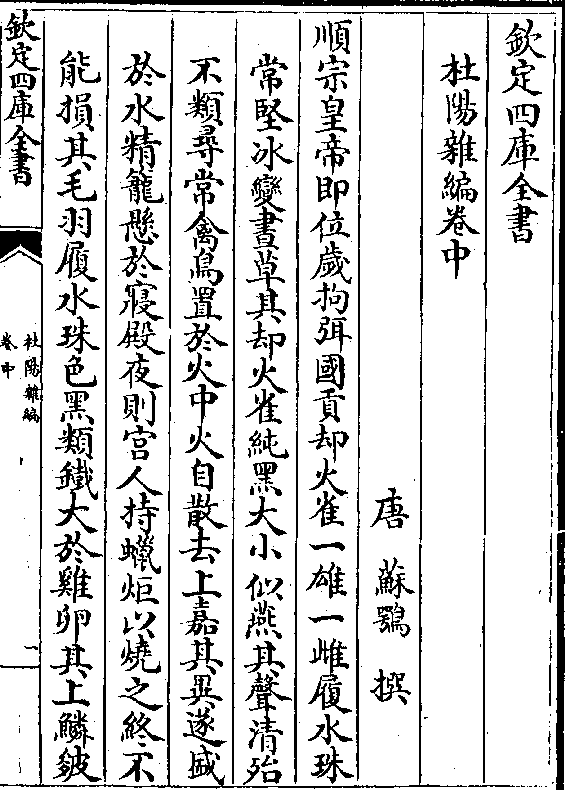 欽定四庫全書
杜陽雜編卷中
唐 蘇鶚 撰
順宗皇帝即位歲拘弭國貢却火雀一雄一雌履水珠
常堅冰變晝草其却火雀純黑大小似燕其聲清殆
不類尋常禽鳥置於火中火自散去上嘉其異遂盛
於水精籠懸於寢殿夜則宮人持蠟炬以燒之終不
能損其毛羽履水珠色黑類鐵大於雞卵其上鱗皴
欽定四庫全書
杜陽雜編
卷中
一